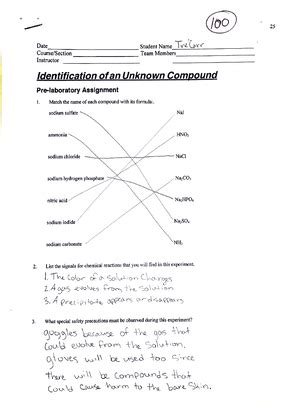 100
25
Date Student Name
Course/Section Team Members
Instructor
Identification of an Unknown Compound
Pre-laboratory Assignment
1. Match the name of each compound with its formula.
sodium sulfate NaI
ammonia HNO3
sodium chloride NaCl
sodium hydrogen phosphate Na2CO3
nitric acid Na2HPO4
sodium iodide Na2SO4
sodium carbonate NH3
2. List the signals for chemical reactions that you will find in this experiment.
1. The color of a solution changes
2. A gas evolves from the solution
3. A precipitate appears or disappears
3. What special safety precautions must be observed during this experiment?
goggles because of the gas that
could evolve from the solution.
gloves will be used too since
there will be compounds that
could cause harm to the bare skin.